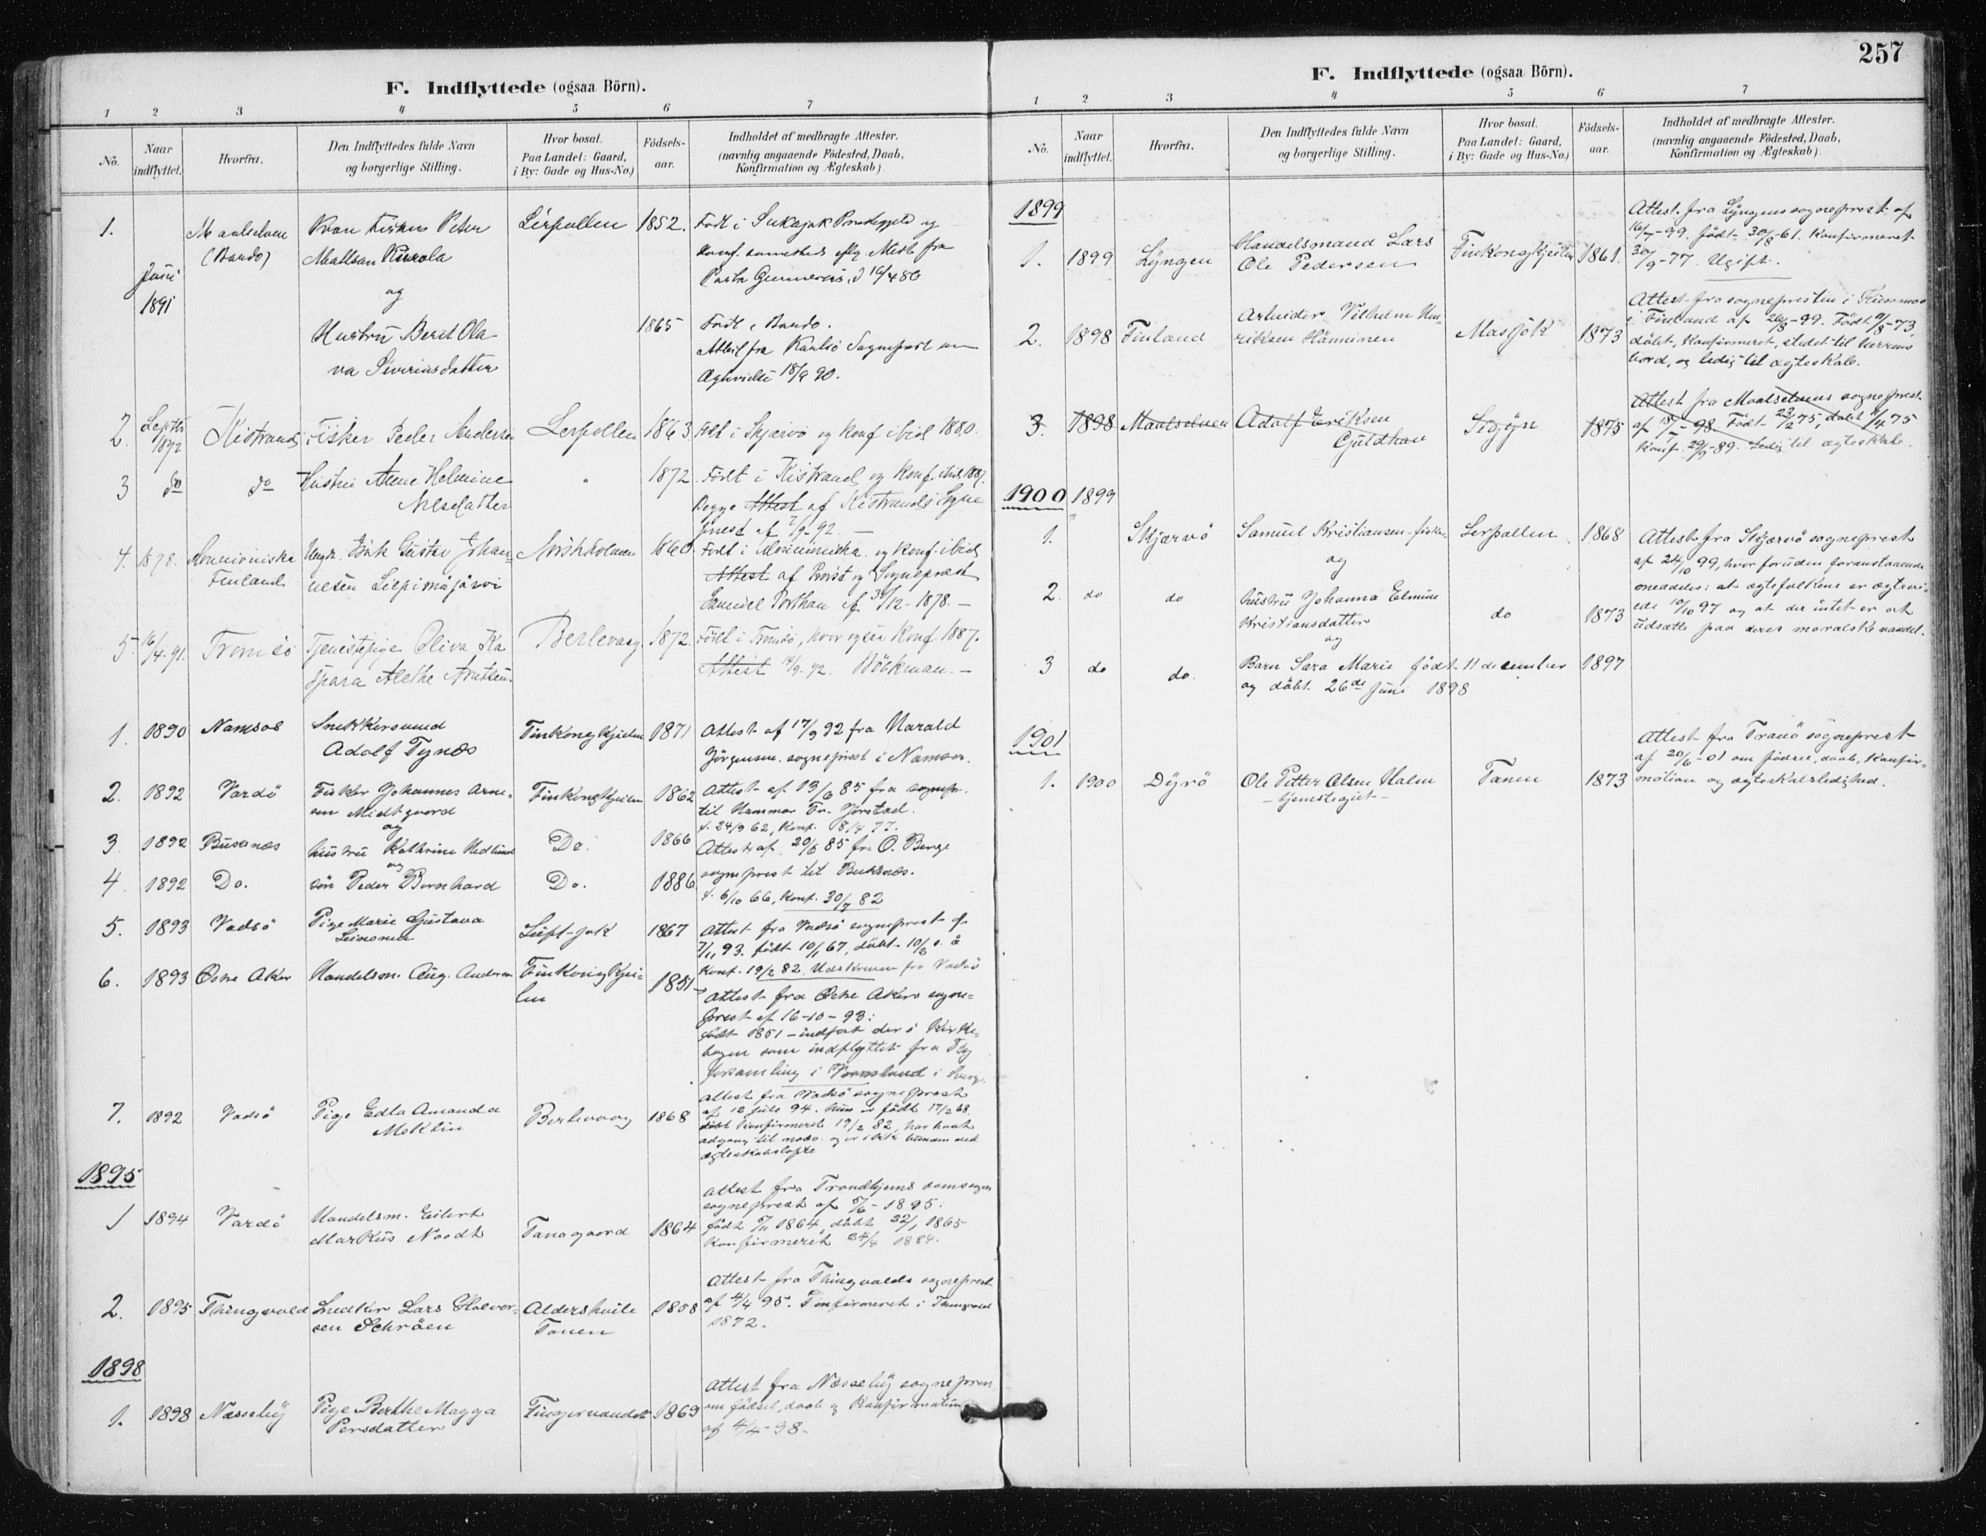 257
F. Indflyttede (ogsaa Börn).
1 2 3 4 5 6 7
No.
Naar indflyttet.
Hvorfra.
Den Indflyttedes fulde Navn og borgerlige Stilling.
Hvor bosat. Paa Landet: Gaard, i By: Gade og Hus-No.)
Födsels-aar.
Indholdet af medbragte Attester. (navnlig angaaende Födested, Daab, Konfirmation og Ægteskab).
1. Maalselven Peter Lerpollen 1852. Født i
(Bardo) Mattsen konf. samesteds
Juni og
1891
Hustru Berit Ola- 1865 Født i Bardo.
va Siverinsdatter
2. Septbr 1892 Kistrand Fisker Peder Andersen Lerpollen 1863 Født i Skjærvö og Konf ibid 1880.
3 do do Hustru Anne Helmine 1872 Født i Kistrand og konf. ibid 1887.
Nilsdatter Begge Attest af Kistrands Sogne
prest af 2/9-92. —
4. 1878. Finland 1860 Født i og Konf. ibid
Attest af Provst og Sogneprest
Samuel Porthan af 1878. —
5 16/4-91. Tromsö Tjenestepige Oliva Ka Berlevaag 1872. Född i Tromsö, hvor ogsaa Konf 1887.
spara Alethe Attest 14/9-92. Böckman. —
1. 1890 Namsos Snekkersvend Finkongkjeilen 1871 Attest af 17/9 92 fra Harald
Adolf Tynæs Jörgensen. sogneprest i Namsos.
2. 1892 Vardö Fisker Johannes Arne- Finkongkjeilen 1862 Attest af 13/6 85 fra sognepr.
sen Midtgaard til Hammer Fr. Jörstad.
og f. 24/9 62, Konf. 18/4 77.
3. 1892 Buksnæs hustru Kathrine Hedlund Do. 1866 Attest af 20/6 85 fra O. Berge
og
4. 1892 Do. sön Peder Bernhard Do. 1886 sogneprest til Buksnæs.
f. 6/10 66, Konf. 30/7 82
5. 1893 Vadsö Pige Marie Gustava Luft-jok 1867 Attest fra Vadsö sogneprest af
Leinonen 7/11 93. født 10/1 67, döbt 10/2 s. å
Konf. 19/2 82. Udskreven fra Vadsö
6. 1893 Østre Aker Handelsm. Aug. Andersen Finkongkjei- 1851
len Attest fra Østre Akers sogne-
prest af 16-10-93:
født 1851 – indført der i Kirke-
bogen som indflyttet fra
forsamling i Vermland i Sverg.
7. 1892 Vadsö Pige Edla Amanda Berlevaag 1868 Attest fra Vadsö sogneprest
Meklin af 12 jule 94. hun er født 17/2 68
Konfirmeret 19/2 82, har havt
adgang til nadv. og er ikke bunden ved
ægteskabslöfte
1895
1 1894 Vardö Handelsm. Eilert Tanagaard 1864 Attest fra Trondhjems domsogns
Markus Noodt sogneprest af 5/6-1895:
født 1864, döbt 22/1 1865
Konfirmeret 24/4 1881.
2. 1895 Thingvold Snedker Lars Halvor- Aldershvile 1858 Attest fra Thingvolds sogneprest
sen Schröen Tanen af 4/4 95. Konfirmeret i Thingvold
1872.
1898
1. 1898 Næsseby Pige Berthe Magga Fingervandet 1869 Attest fra Næsseby sogneprest
Persdatter om födsel, daab og Konfirmation
af 4/4-98.
F. Indflyttede (ogsaa Börn).
1 2 3 4 5 6 7
No.
Naar indflyttet.
Hvorfra.
Den Indflyttedes fulde Navn og borgerlige Stilling.
Hvor bosat. Paa Landet: Gaard, i By: Gade og Hus-No.)
Födsels-aar.
Indholdet af medbragte Attester. (navnlig angaaende Födested, Daab, Konfirmation og Ægteskab).
1899
1. 1899 Lyngen Handelsmand Lars Finkongkjeilen 1861. Attest fra Lyngens sogneprest af
Ole Pedersen 16/7-99. født 30/8-61. Konfirmeret
30/9-77. Ugift.
2. 1898 Finland Arbeider Vilhelm Hen- Masjok 1873 Attest fra sognepresten i Kuusamo
riksen Hänninen i Finland af 26/8-99. Født 9/8-73,
döbt, Konfirmeret, stedet til herrens
bord, og ledig til ægteskab.
3. 1898 Maalselven Adolf Eriksen 1875 Attest fra Maalselvens sogneprest
Guldhav af 18/7-98. Født 23/2 75, döbt 4/4 75
Konf. 29/9-89. Ledig til ægteskab.
1900 1899
1. " Skjærvö Samuel Kristiansen fisker Lerpollen 1868 Attest fra Skjærvö sogneprest
og af 24/10 99, hvor foruden foranstaaende
2. do do hustru Johanna Elmine do 1873 meddeles: at ægtefolkene er ægtevi-
Kristiansdatter ede 10/10 97 og at der intet er at
og udsætte paa deres moralske vandel.
3 do do. Barn Sara Marie född 11 december 1897
og döbt 26de Juni 1898
1901
1. 1900 Dyrö Ole Petter Olsen Halen Tanen 1873 Attest fra Tranö sogneprest
– tjenestegut – af 20/6-01 om födsel, daab, Konfir-
mation og ægteskabsledighed.